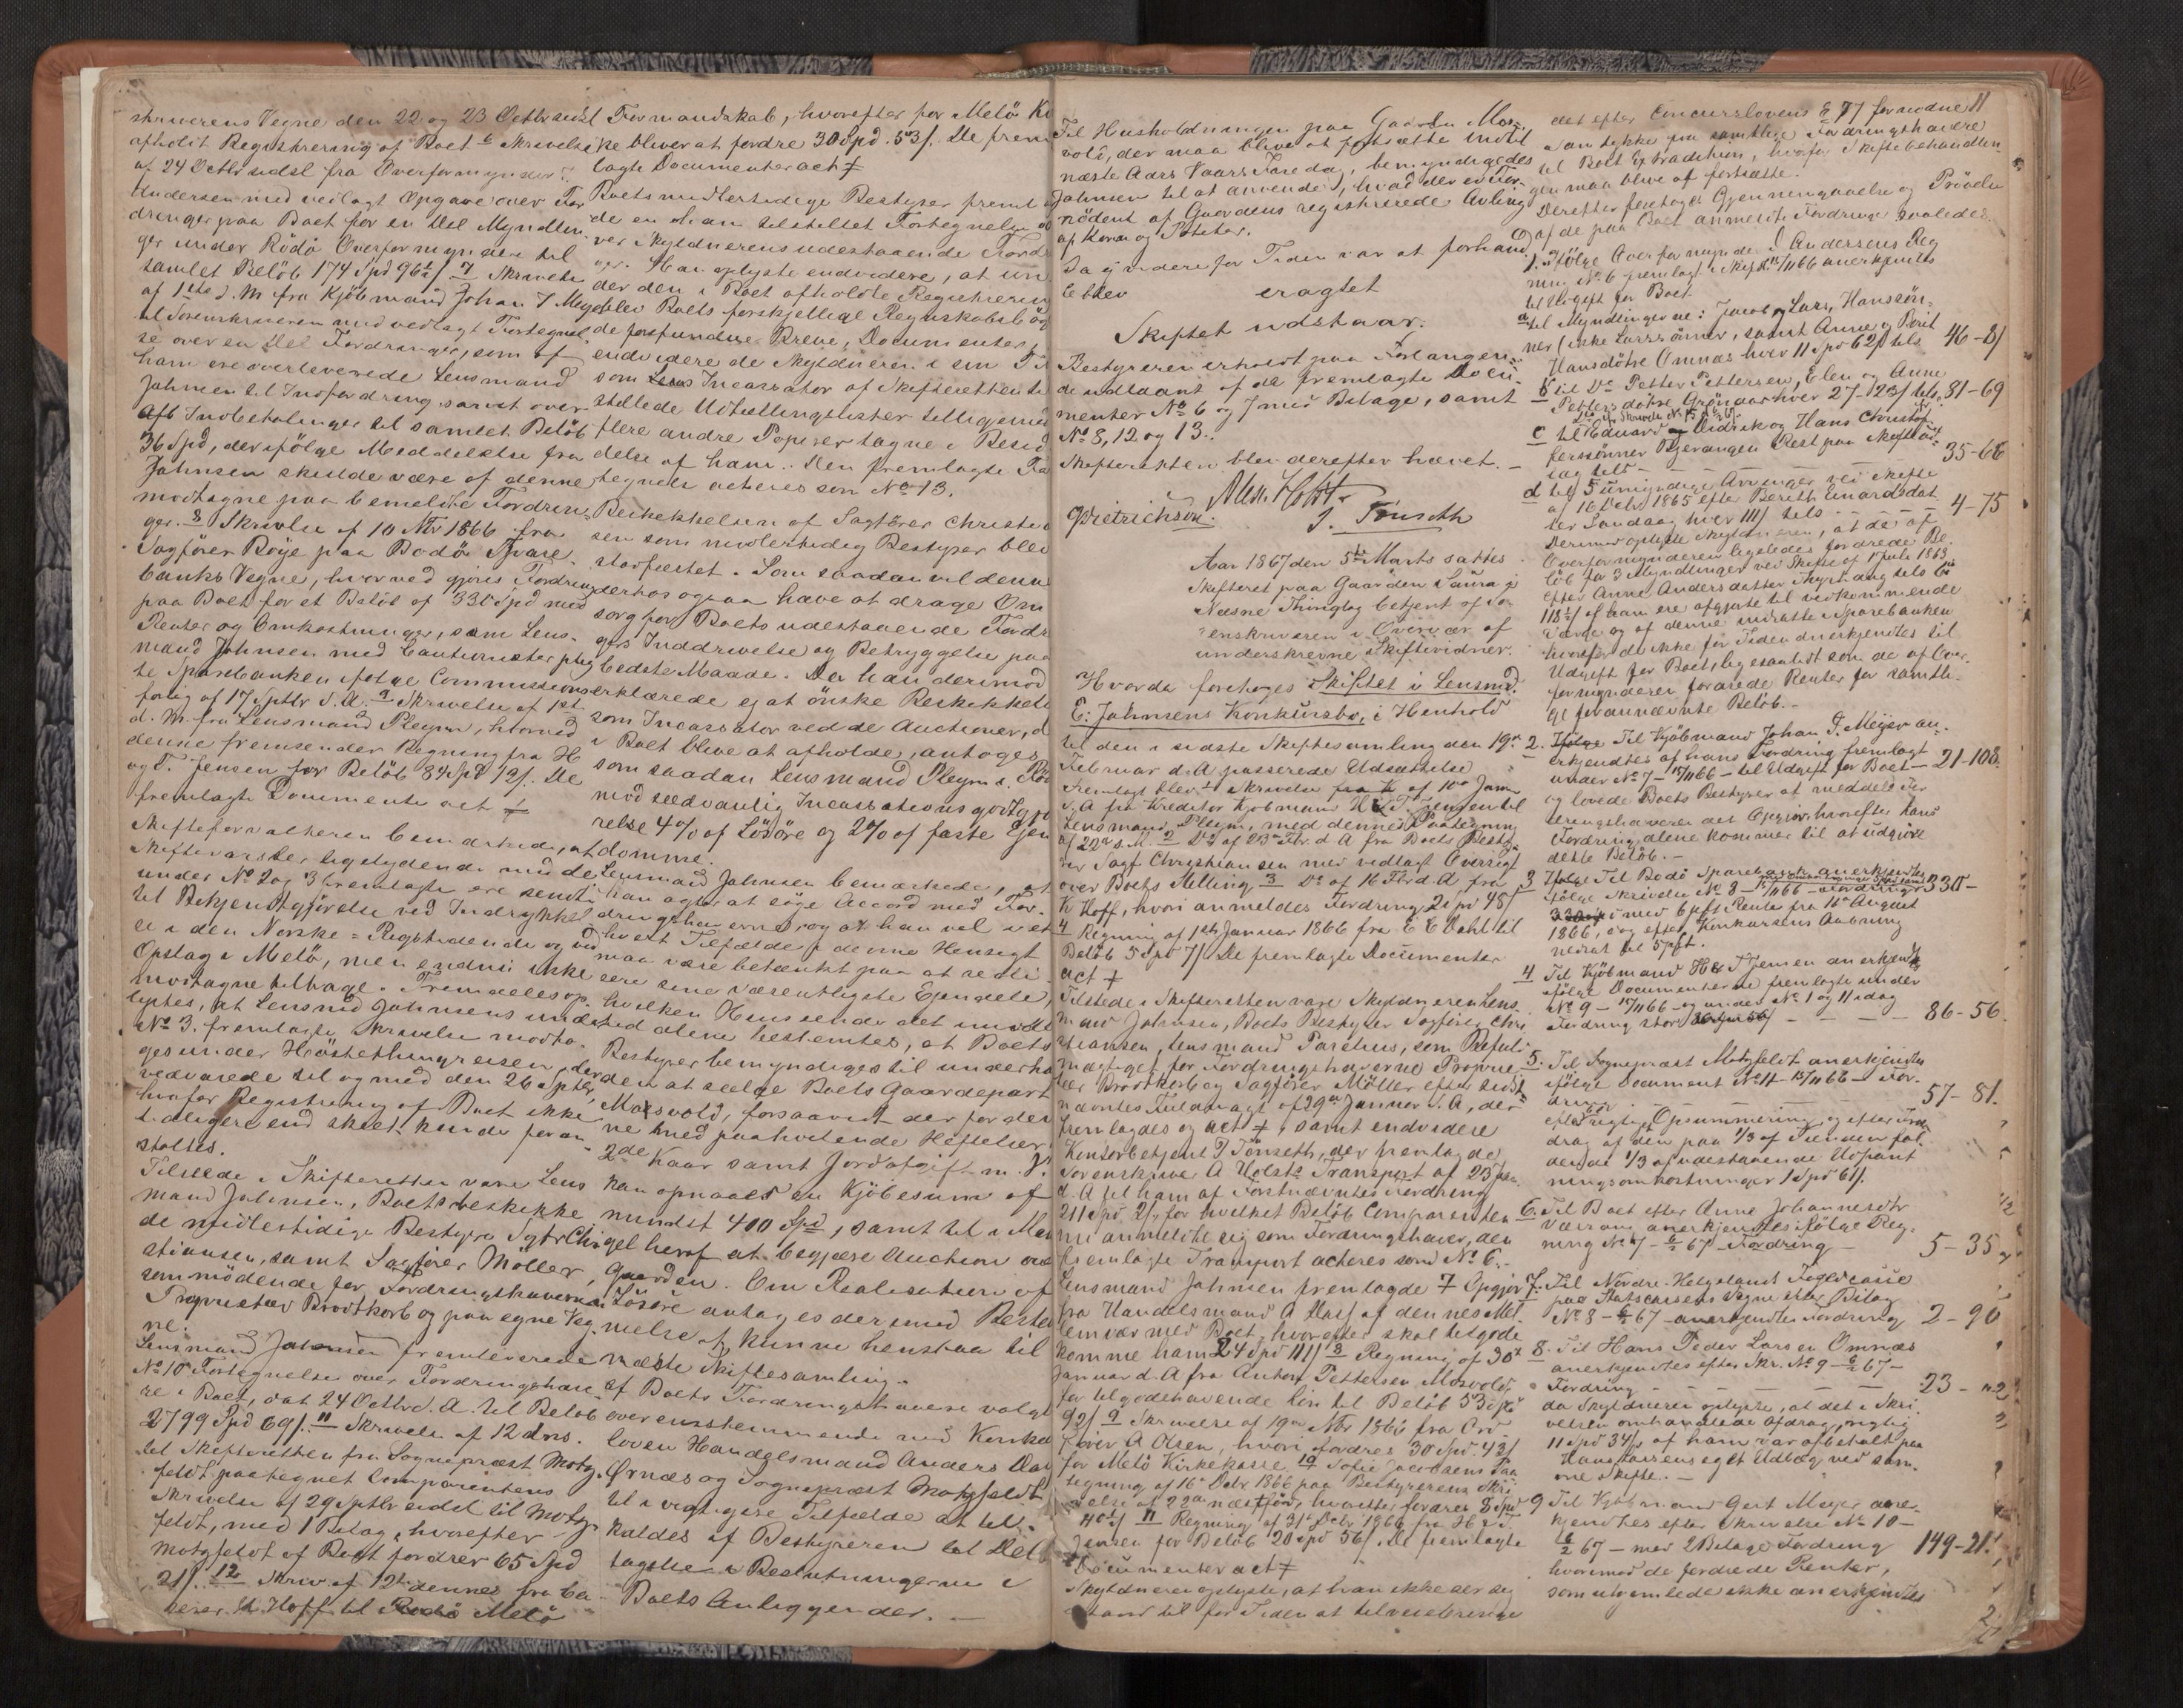 skriverens Vegne den 22 og 23 Octbr sidst
afholdt Registrering af Boet 6 Skrivelse
af 24 Octbr sidst fra Overformynder I.
Andersen med vedlagt Opgave over For
dringer paa Boet for en Del Myndlin-
ger under Rödö Overformynderi til
samlet Belöb 174 Spd 96½ ſ 7 Skrivelse
af 1ste d. M fra Kjöbmand Johan I Meyer
til Sorenskriveren med vedlagt Fortegnel
se over en Del Fordringer, som af
ham ere overleverede Lensmand
Jahnsen til Indfordring samt over
Afb Indbetalinger til samlet Belöb
36 Spd, der ifölge Meddelelse fra
Jahnsen skulde være af denne
modtagne paa bemeldte Fordrin
ger. 8 Skrivelse af 10 Nbr 1866 fra
Sagförer Böye paa Bodö Spare-
banks Vegne, hvorved gjöres Fordring
paa Boet for et Belöb af 330 Spd med
Renter og Omkostninger, som Lens-
mand Jahnsen med Cautionister pligte
te Sparebanken ifölge Commissions
forlig af 17 Septbr d. A. 9 Skrivelse af 1st
d. M. fra Lensmand Pleym, hvorved
denne fremsender Regning fra H
og T. Jensen for Belöb 84 Spd 12 ſ. De
fremlagte Documenter act ‡
Skifteforvalteren bemærkede, at
Skiftevarsler, ligelydende med de
under No 2 og 3 fremlagte ere sendte
til Bekjendtgjörelse ved Indrykkel
se i den Norske-Rigstidende og ved
Opslag i Melö, men endnu ikke
modtagne tilbage. Fremdeles op-
lystes, at Lensmd Jahnsens under
No 3. fremlagte Skrivelse modto-
ges under Hösttethingreisen, der
vedvarede til og med den 26 Septbr,
hvorfor Registrering af Boet ikke
tidligere end skeet kunde foran
staltes.
Tilstede i Skifteretten vare Lens
mand Jahnsen, Boets beskikke
de midlertidige Bestyrer Sagfr Chri
stiansen, samt Sagförer Möller,
som mödende for Fordringshaverne
Proprietær Brodtkorb og paa egne Veg
ne.
Lensmand Jahnsen fremleverede
No 10 Fortegnelse over Fordringshave
re i Boet, dat 24 Octbr d. A. til Belöb
2799 Spd 69 ſ. 11 Skrivelse af 12 dns.
til Skifteretten fra Sognepræst Motz-
feldt paategnet Comparentens
Skrivelse af 29 Septbr sidst til Motz-
feldt, med 1 Bilag, hvorefter
Motzfeldt af Boet fordrer 65 Spd
21 ſ. 12 Skriv af 12te dennes fra Ca-
serer K Hoff til Rödö Melö
Formandskab, hvorefter for Melö Ki
ke bliver at fordre 30 Spd. 53 ſ. De frem
lagte Documenter act ‡
Boets midlertidige Bestyrer freml
de en af ham tilstillet Fortegnelse o
ver Skyldnerens udestaaende Fordr
ger. Han oplyste endvidere, at un
der den i Boet afholdte Registrering
blev Boets forskjellige Regnskabsbög
de forefundne Breve, Documenter,
endvidere de Skyldneren i sin Ti
som Incassator af Skifteretten til
stillede Udtællingslister tilligemed
flere andre Papirer tagne i Besid
delse af ham. Den fremlagte For
tegnelse acteres som No 13.
Beskikkelsen af Sagförer Christia
sen som midlertidig Bestyrer blev
stadfæstet. Som saadan vil denne
derhos ogsaa have at drage Om
sorg for Boets udestaaende Fordr
gers Inddrivelse og Betryggelse paa
bedste Maade. Da han derimod
erklærede ej at önske Beskikkelse
som Incassator ved de Auctioner, d
i Boet blive at afholde, antoges
som saadan Lensmand Pleym i Röd
mod sædvanlig Incassationsgodtgjö
relse 4 % af Lösöre og 2 % af faste Ejen
domme.
Lensmand Jahnsen bemærkede, at
han agter at söge Accord med For-
dringshaverne, og at han vel i et
hvert Tilfælde i denne Hensigt
maa være betænkt paa at reali
sere sine væsentligste Ejendele,
i hvilken Henseende det imidler
tid alene bestemtes, at Boets
Bestyrer bemyndiges til underha
den at sælge Boets Gaardepart
Mosvold, forsaavidt der for den
ne med paahvilende Heftelser
2de Kaar samt Jordafgift m. V.
kan opnaaes en Kjöbesum af
mindst 400 Spd, samt til i Man
gel heraf at begjære Auction over
Gaarden. Om Realisationen af
Lösöre antages dermed Bestem
melse at kunne henstaa til
næste Skiftesamling.
Af Boets Fordringshavere valgtes
overensstemmende med Konkurs
loven Handelsmand Anders Dass
Ørnæs og Sognepræst Motzfeldt
til i vigtigere Tilfælde at til-
kaldes af Bestyreren til Delt
tagelse i Beslutningerne i
Boets Anliggender. —
Til Husholdningen paa Gaarden Mos-
vold, der maa blive at fortsætte indtil
næste Aars Vaars Faredag, bemyndigedes
Jahnsen til at anvende, hvad der er For-
nödent af Gaardens registrerede Avling
af Korn og Poteter.
Da ej videre for Tiden var at forhand
le blev eragtet
Skiftet udstaar.
Bestyreren erholdt paa Forlangen-
de udlaant af de fremlagte Docu-
menter No 6 og 7 med Bilage, samt
No 8, 12 og 13.
Skifteretten blev derefter hævet. —
Alex. Holst
G Dietrichson. P. Tönseth
Aar 1867 den 5te Marts sattes
Skifteret paa Gaarden Saura i
Næsne Thinglag betjent af So
renskriveren i Overvær af
underskrevne Skiftevidner.
Hvorda foretoges Skiftet i Lensmd.
E. Jahnsens Konkursbo, i Henhold
til den i sidste Skiftesamling den 19de
Februar d. A passerede Udsættelse
Fremlagt blev 1 Skrivelse fra K af 10de Janr
d. A fra Kreditor Kjöbmand H & T. Jensen til
Lensmand Pleym, med dennes Paategning
af 22de s. M. 2 Do af 23de Fbr. d A fra Boets Besty-
rer Sagf Christiansen med vedlagt Oversigt
over Boets Stilling 3 Do af 16 Fbr d. A fra
K Hoff, hvori anmeldes Fordring 2 Spd 48 ſ
4 Regning af 1ste Januar 1866 fra E C Dahl til
Belöb 5 Spd 7 ſ De fremlagte Documenter
act ‡
Tilstede i Skifteretten vare Skyldneren Lens
mand Jahnsen, Boets Bestyrer Sagförer Chri
stiansen, Lensmand Parelius, som Befuld
mægtiget for Fordringshaverne Proprie
tær Brodtkorb og Sagförer Möller efter sidst
nævntes Fuldmagt af 29de Januar d. A, der
fremlagdes og act ‡, samt endvidere
Kontorbetjent P Tönseth, der fremlagde
Sorenskriver A Holsts Transport af 23 Jan.
d. A til ham af Förstnævntes Fordring
211 Spd 2 ſ, for hvilket Belöb Comparenten
nu anmeldte sig som Fordringshaver, den
fremlagte Transport acteres som No 6.
Lensmand Jahnsen fremlagde 7 Opgjör
fra Handelsmand A Dass af dennes Mel-
lemvær med Boet, hvorefter skal tilgode
komme ham 24 Spd 111 ſ 8 Regning af 30te
Januar d. A fra Anton Pettersen Mosvold,
for tilgodehavende Lön til Belöb 53 Spd
92 ſ 9 Skrivelse af 19de Nbr 1866 fra Ord
förer A Olsen, hvori fordres 30 Spd 43 ſ
for Melö Kirkekasse 10 Sofie Jacobsens Paa
tegning af 16de Octbr 1866 paa Bestyrerens Skri
velse af 22de næstför, hvorefter fordres 8 Spd
40 ſ 11 Regning af 31te Decbr 1866 fra H & T
Jensen for Belöb 20 Spd 56 ſ. De fremlagte
Documenter act ‡
Skyldneren oplyste, at han ikke ser sig
i Stand til for Tiden at tilveiebringe
11
det efter Concurslovens § 77 fornødne
Samtykke fra samtlige Fordringshavere
til Boets Extradition, hvorfor Skiftebehandlin
gen maa blive at fortsætte.
Derefter foretoges Gjennemgaaelse og Prövelse
af de paa Boet anmeldte Fordringer saaledes.
1. Ifölge Overformynder I Andersens Reg
ning No 6 fremlagt i Skift 15/11 66 anerkjendtes
til Udgift for Boet
a til Myndlingerne: Jacob og Lars Hanssön-
ner (ikke Larssönner, samt Anne og Berit
Hansdötre Omnæs hver 11 Spd 62 ſ tils 46-8 ſ
b til Do Petter Pettersen, Elen og Anne
Pettersdötre Grönaas hver 27-23 ſ tils. 81-69
c til Eduard Didrik og Hans Christof
fersönner Bjerangen Rest paa Skifteud
lag tils — 35-68
d til 5 umyndige Arvinger ved Skifte
af 16 Octbr 1865 efter Bereth Einarsdat
ter Sandaag hver 111 ſ tils 4-75
Derimod oplyste Skyldneren, at de af
Overformynderen ligeledes fordrede Be-
löb for 3 Myndlinger ved Skifte af 1 Juli 1863
efter Anne Andersdatter Skyttaag tils 6
118 ſ af ham ere afgjorte til vedkommende
Værge og af denne indsatte i Sparebanken
hvorfor de ikke for Tiden anerkjendtes til
Udgift for Boet, ligesaalidt som de af Over-
formynderen fordrede Renter for samtli-
ge forannævnte Belöb. —
2. Til Kjöbmand Johan I. Meijer an-
erkjendtes af hans Fordring fremlagt
under No 7 - 15/11 66 - til Udgift for Boet — 21-108.
og lovede Boets Bestyrer at meddele For
dringshaveren det Opgjör, hvorefter hans
Fordring alene kommer til at udgjöre
dette Belöb. —
3 Til Bodö Sparebank anerkjendtes
ifölge Skrivelse No 8 - 15/11 66 - Fordring 330-
med 6 pCt Rente fra 11te August
1866, dog efter Konkursens Aabning
nedsat til 5 pCt.
4 Til Kjöbmand H & T Jensen anerkjendt
ifölge Documenterne fremlagte under
No 9 - 15/11 66 - og under No 1 og 11 idag
Fordring stor — — — 86-56.
5. Til Sognepræst Motzfeldt anerkjendtes
ifölge Document No 11 - 15/11 66 - For-
dring 57-81.
efter rigtig Opsummering og efter Fra
drag af den paa 1/3 af Tienden fal-
dende 1/3 af udestaaende Udpant
ningsomkostninger 1 Spd 61 ſ.
6. Til Boet efter Anne Johannesdtr
Værrang anerkjendtes ifölge Reg-
ning No 7 - 6/2 67 - Fordring — 5-35
7. Til Nordre-Helgelands Fogedcasse
paa Statscassens Vegne efter Bilag
No 8 - 6/2 67 - anerkjendtes Fordring 2-90
8. Til Hans Peder Larsen Omnæs
anerkjendtes efter Skr. No 9 - 6/2 67 -
Fordring — — — 23-
da Skyldneren oplyste, at det i Skri
velsen omhandlede Afdrag, rigtig
11 Spd 34 ſ, af ham var afbetalt paa
Hans Larsens eget Udlæg ved sam-
me Skifte. —
9 Til Kjöbmand Gert Meyer aner-
kjendtes efter Skrivelse No 10 -
6/2 67 - med 2 Bilage Fordring 149-21.
hvorimod de fordrede Renter,
som uhjemlede ikke anerkjendtes